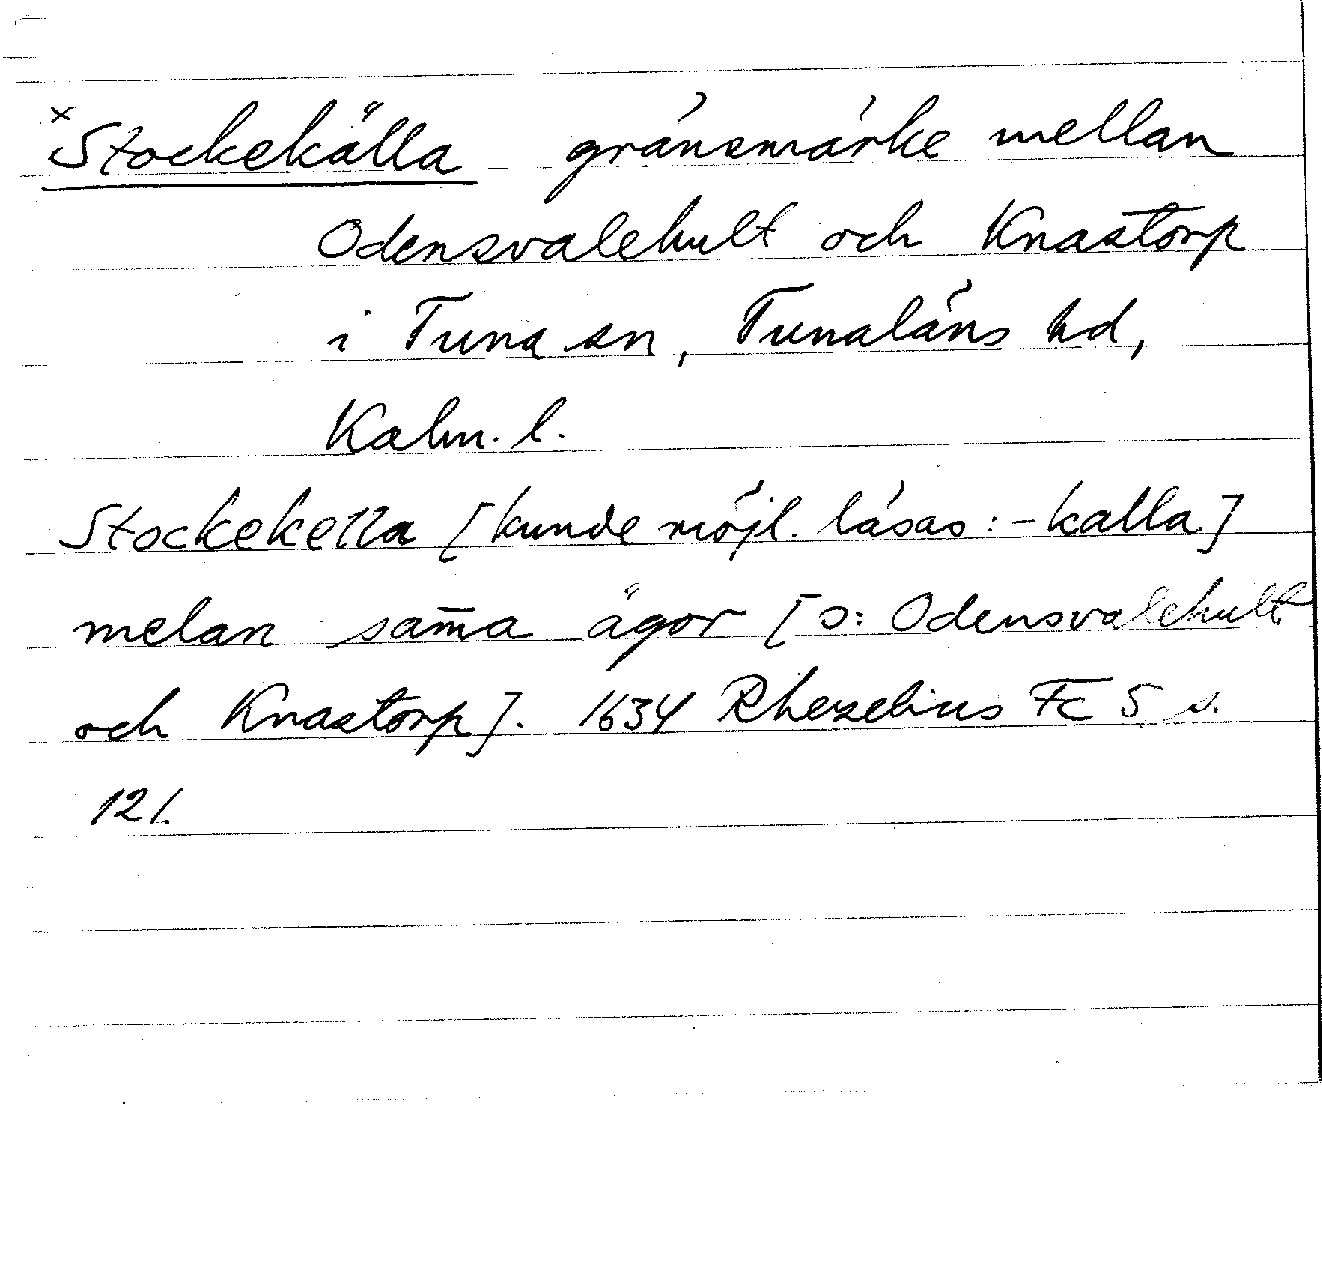 ×Stockekälla gränsmärke mellan
Odensvalehult och Knastorp
i Tuna sn, Tunaläns hd,
Kalm. l.
Stockekella [kunde möjl. läsas: -kalla]
melan sam̄a ägor [ɔ: Odensvalehult
och Knastorp]. 1634 Rhezelius Fc 5 s.
121.